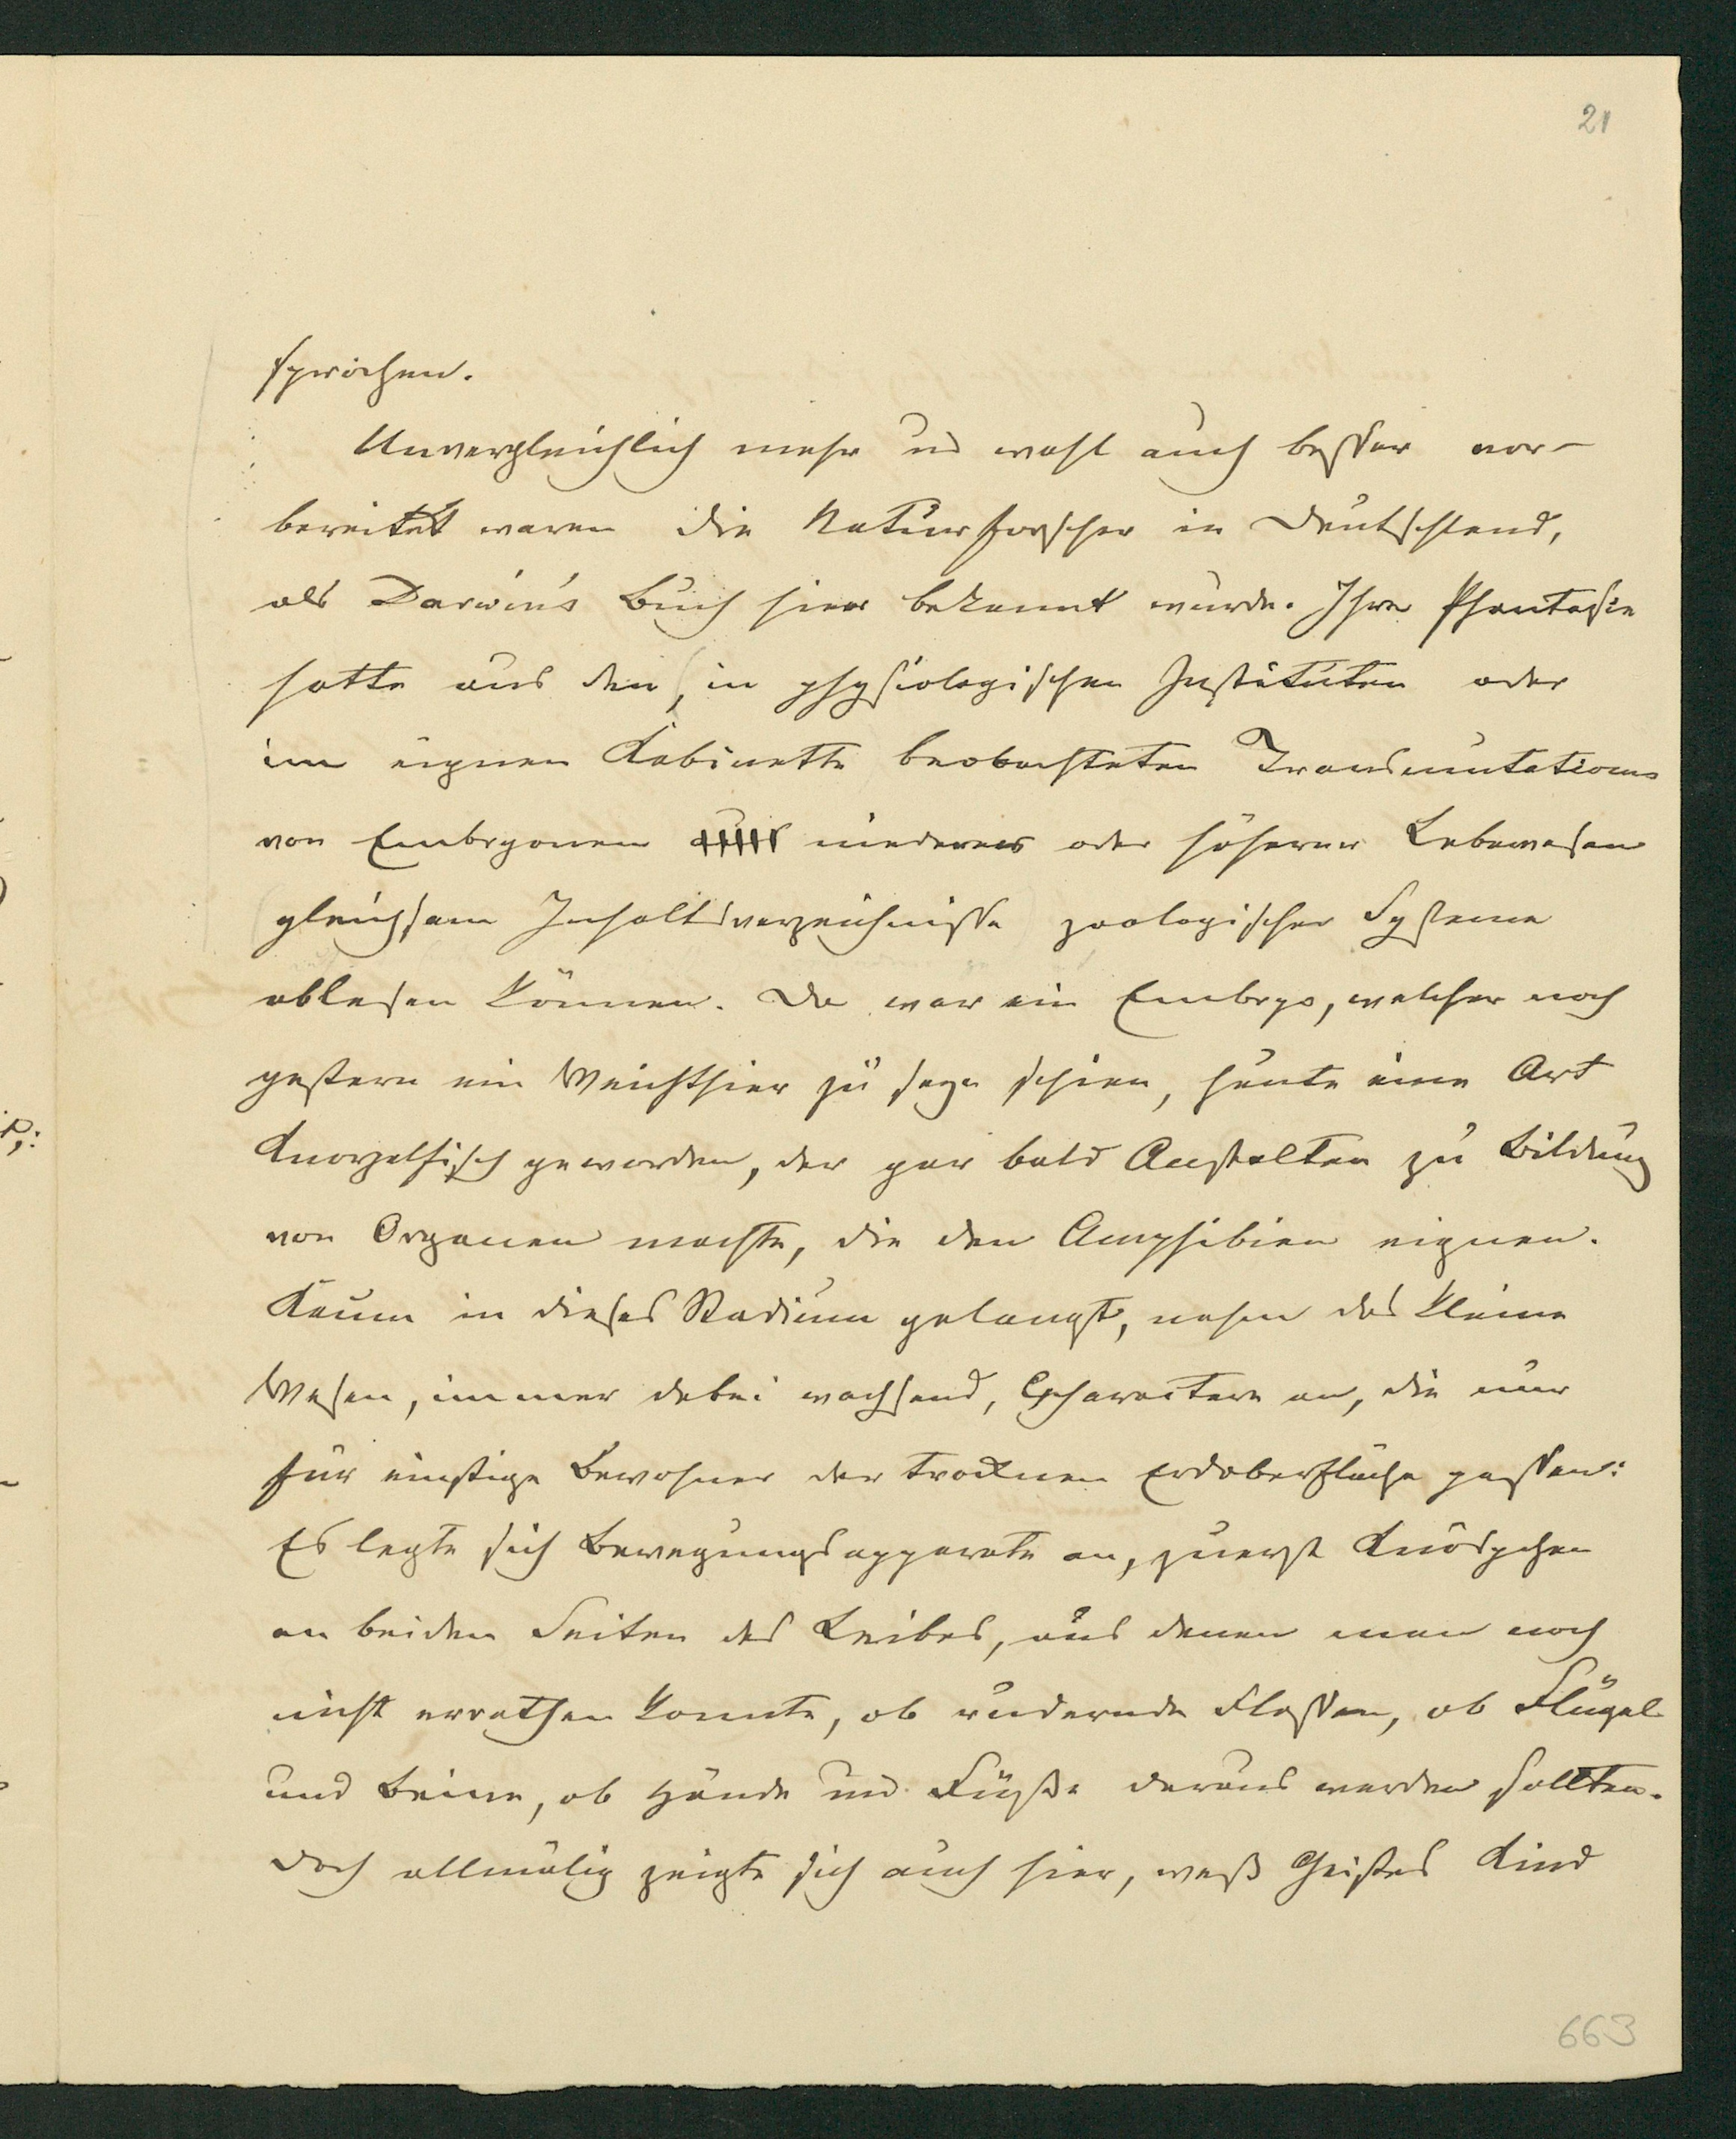 21
sprächen.
Unvergleichlich mehr und wohl auch besser vor-
bereitet waren die Naturforscher in Deutschland,
als Darwin's Buch hier bekannt wurde. Ihre Phantasie
hatte aus den, in physiologischen Instituten oder
im eignen Kabinette beobachteten Transmutationen
von Embryonen niederer oder höherer Lebewesen
gleichsam Inhaltsverzeichnisse zoologischer Systeme
ablesen können. Da war ein Embryo, welcher noch
gestern ein Weichthier zu seyn schien, heute eine Art
Knorpelfisch geworden, der gar bald Anstalten zu Bildung
von Organen machte, die den Amphibien eignen.
Kaum in dieses Stadium gelangt, nahm das kleine
Wesen, immer dabei wachsend, Charactere an, die nur
für einstige Bewohner der trocknen Erdoberfläche passen:
Es legte sich Bewegungsapparate an, zuerst Knöspchen
an beiden Seiten des Leibes, aus denen man noch
nicht errathen konnte, ob rudernde Flossen, ob Flügel
und Beine, ob Hände und Füße daraus werden sollten.
Doch allmälig zeigte sich auch hier, weß Geistes Kind
663